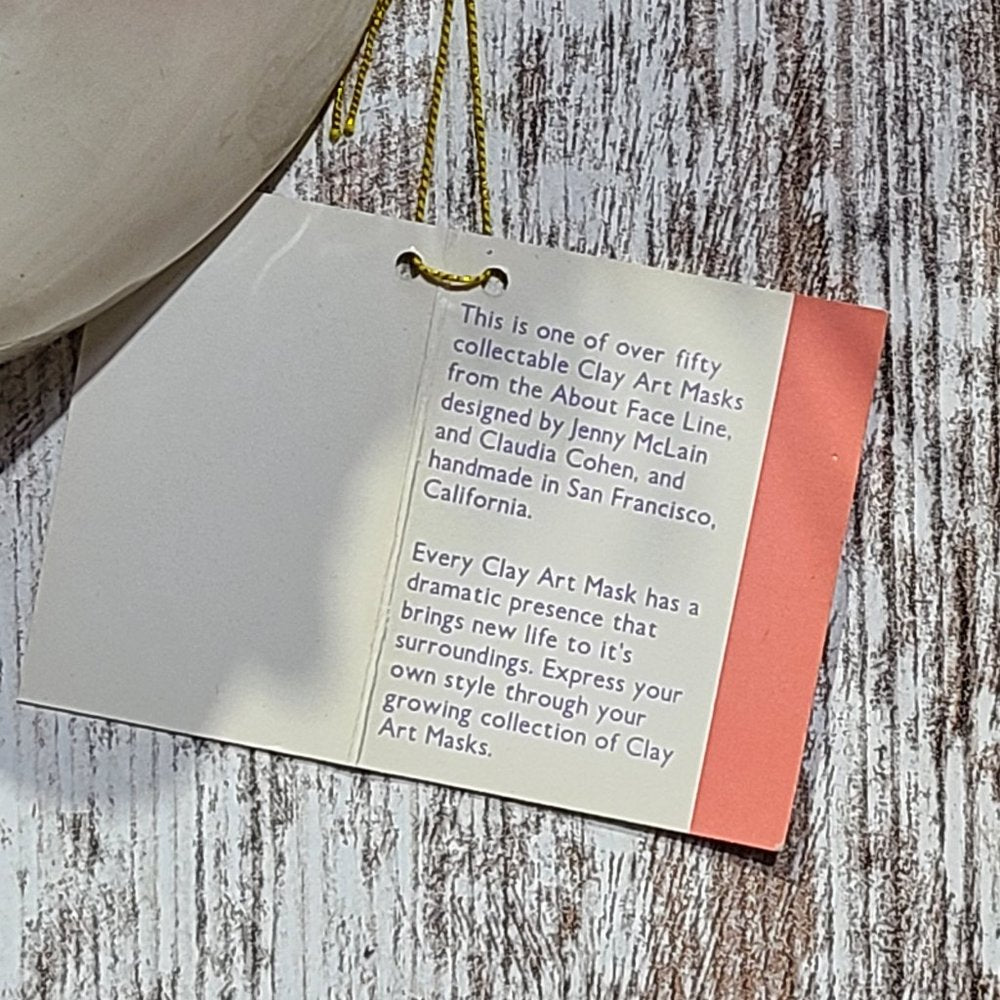 This is one of over fifty
collectable Clay Art Masks
from the About Face Line,
designed by Jenny McLain
and Claudia Cohen, and
handmade in San Francisco,
California.
Every Clay Art Mask has a
dramatic presence that
brings new life to it's
surroundings. Express your
own style through your
growing collection of Clay
Art Masks.